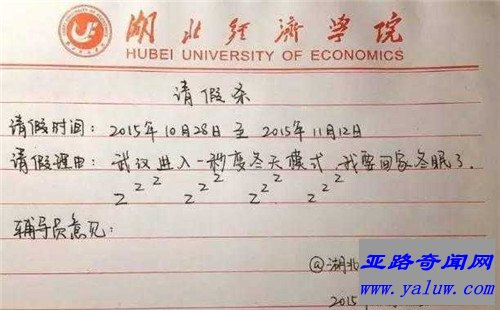 湖北经济学院
HUBEI UNIVERSITY OF ECONOMICS
请假条
请假时间：2015年10月28日 至 2015年11月12日
请假理由：武汉进入一秒变冬天模式，我要回家冬眠了.
z z z z z z z z z z z z
辅导员意见：
@湖北
亚路奇闻网
www.yaluw.com
2015